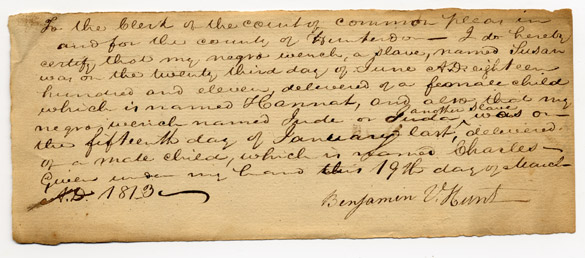 To the Clerk of the court of common pleas in
and for the county of Hunterdon — I do hereby
certify that my negro wench, a slave, named Susan
was on the twenty third day of June A.D. eighteen
hundred and eleven, delivered of a female child
which is named Hannat, and also, that my
another slave
negro wench named Jude or Juda, was on
the fifteenth day of January last, delivered
of a male child, which is named Charles—
Given under my hand this 19th day of March
A.D. 1813
Benjamin V. Hunt